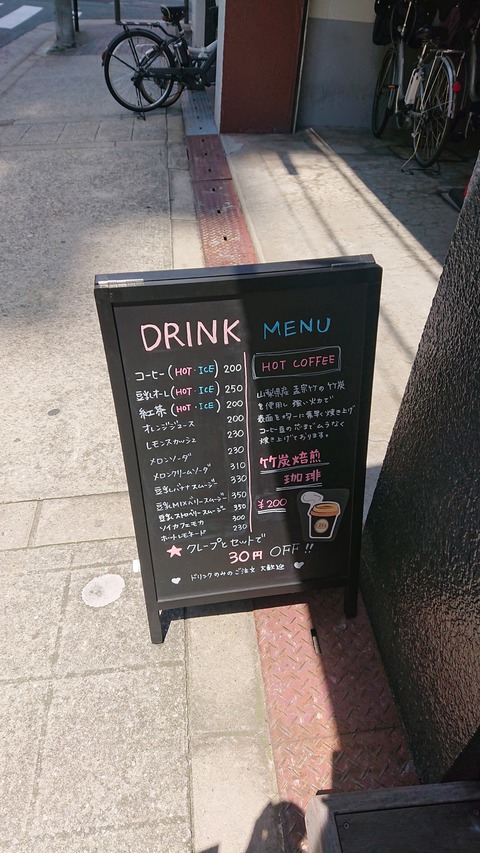 DRINK MENU
コーヒー(HOT・ICE) 200
豆乳オーレ(HOT・ICE) 250
紅茶(HOT・ICE) 200
オレンジジュース 200
レモンスカッシュ 230
メロンソーダ 230
メロンクリームソーダ 310
豆乳バナナスムージー 330
豆乳MIXベリースムージー 350
豆乳ストロベリースムージー 350
ソイカフェモカ 300
ホットレモネード 230
HOT COFFEE
山梨県産 孟宗竹の竹炭
を使用し 強い火力で
表面を
素早く焼き上げ
コーヒー豆の芯までムラなく
焼き上げております。
竹炭焙煎
珈琲
¥200
★クレープとセットで
30円 OFF!!
♥ ドリンクのみのご注文 大歓迎 ♥